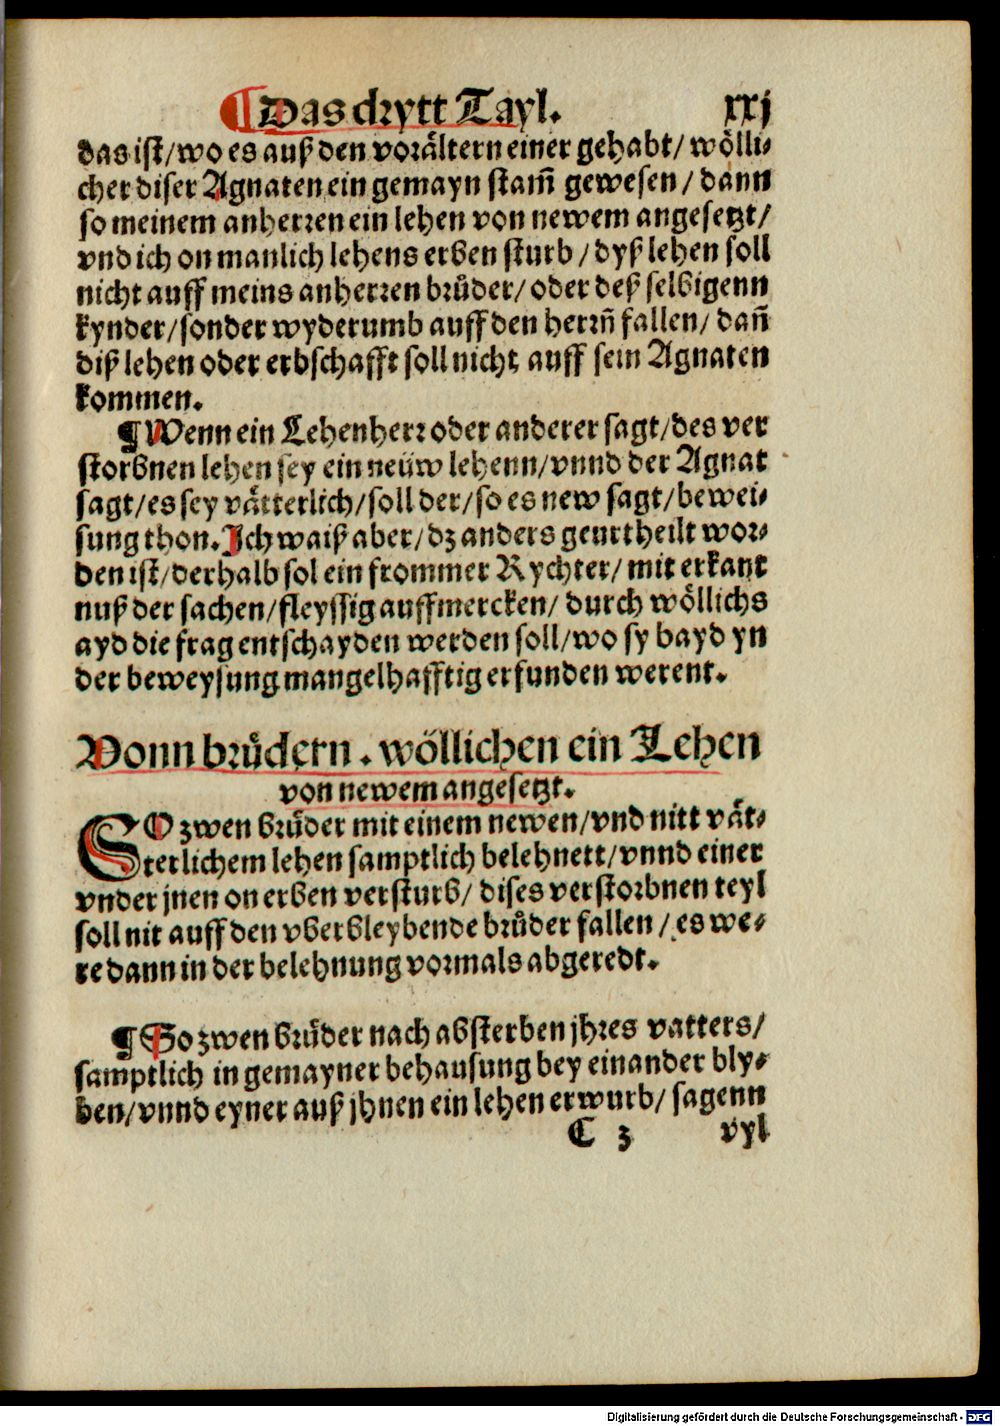 ¶ Das drytt Tayl. xxj
das ist/wo es auß den vorältern einer gehabt/ wölli-
cher diser Agnaten ein gemayn stam̃ gewesen/ dann
so meinem anherren ein lehen von newem angesetzt/
vnd ich on manlich lehens erben sturb/ dyß lehen soll
nicht auff meins anherren brůder/ oder deß selbigenn
kynder/sonder wyderumb auff den herrn̄ fallen/ dan̄
diß lehen oder erbschafft soll nicht auff sein Agnaten
kommen.
¶ Wenn ein Lehenherr oder anderer sagt/des ver
storbnen lehen sey ein neüw lehenn/vnnd der Agnat
sagt/es sey vätterlich/soll der/so es new sagt/bewei-
sung thon. Ich waiß aber/dz anders geurtheilt wor-
den ist/derhalb sol ein frommer Rychter/ mit erkant
nuß der sachen/fleyssig auffmercken/ durch wöllichs
ayd die frag entschayden werden soll/wo sy bayd yn
der beweysung mangelhafftig erfunden werent.
Vonn brůdern. wöllichen ein Lehen
von newem angesetzt.
SO zwen brůder mit einem newen/vnd nitt vät-
terlichem lehen samptlich belehnett/vnnd einer
vnder jnen on erben versturb/ dises verstorbnen teyl
soll nit auff den vberbleybende brůder fallen/ es we-
re dann in der belehnung vormals abgeredt.
¶ So zwen brůder nach absterben jhres vatters/
samptlich in gemayner behausung bey einander bly-
ben/vnnd eyner auß jhnen ein lehen erwurb/ sagenn
C 3 vyl
Digitalisierung gefördert durch die Deutsche Forschungsgemeinschaft - DFG